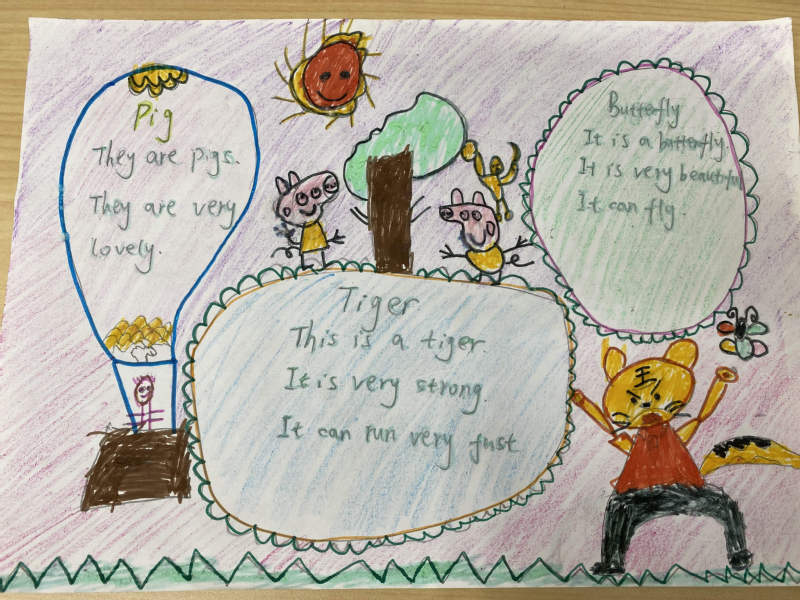 Pig
They are pigs.
They are very
lovely.
Tiger
This is a tiger.
It is very strong.
It can run very fust
Butterfly
It is a butterfly.
It is very beautiful
It can fly.
王